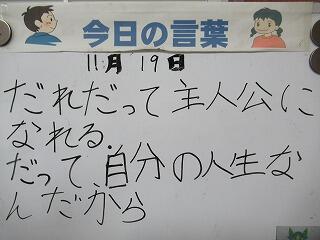 今日の言葉
11月 19日
だれだって主人公に
なれる.
だって自分の人生な
んだから